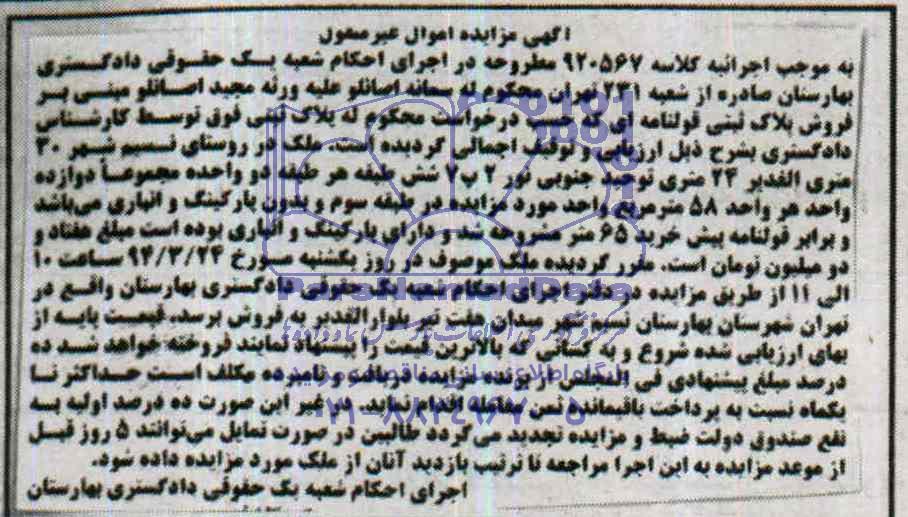 آگهی مزایده اموال غیرمنقول
به موجب اجرائیه کلاسه ۹۲۰۵۶۷ مطروحه در اجرای احکام شعبه یک حقوقی دادگستری
بهارستان صادره از شعبه ۲۳۱ تهران محکوم له سمانه اصانلو علیه ورثه مجید اصانلو مبنی بر
فروش پلاک ثبتی قولنامه ای که حسب درخواست محکوم له پلاک ثبتی فوق توسط کارشناس
دادگستری بشرح ذیل ارزیابی و توقیف اجمالی گردیده است. ملک در روستای نسیم شهر ۳۰
متری الغدیر ۲۴ متری توحید جنوبی نور ۲ پ۷ شش طبقه هر طبقه دو واحده مجموعاً دوازده
واحد هر واحد ۵۸ مترمربع واحد مورد مزایده در طبقه سوم و بدون پارکینگ و انباری می‌باشد
و برابر قولنامه پیش خرید ۶۵ متر مشروحه شد و دارای پارکینگ و انباری بوده است مبلغ هفتاد و
دو میلیون تومان است. مقرر گردیده ملک موصوف در روز یکشنبه مورخ ۹۴/۳/۲۴ ساعت ۱۰
الی ۱۱ از طریق مزایده در دفتر اجرای احکام شعبه یک حقوقی دادگستری بهارستان واقع در
تهران شهرستان بهارستان نسیم شهر میدان هفت تیر بلوار الغدیر به فروش برسد. قیمت پایه از
بهای ارزیابی شده شروع و به کسانی که بالاترین قیمت را پیشنهاد نمایند فروخته خواهد شد ده
درصد مبلغ پیشنهادی فی المجلس از برنده مزایده دریافت و نامبرده مکلف است حداکثر تا
یکماه نسبت به پرداخت باقیمانده ثمن معامله اقدام نماید. در غیر این صورت ده درصد اولیه به
نفع صندوق دولت ضبط و مزایده تجدید می گردد طالبین در صورت تمایل می‌توانند ۵ روز قبل
از موعد مزایده به این اجرا مراجعه تا ترتیب بازدید آنان از ملک مورد مزایده داده شود.
اجرای احکام شعبه یک حقوقی دادگستری بهارستان
ParsNamadData